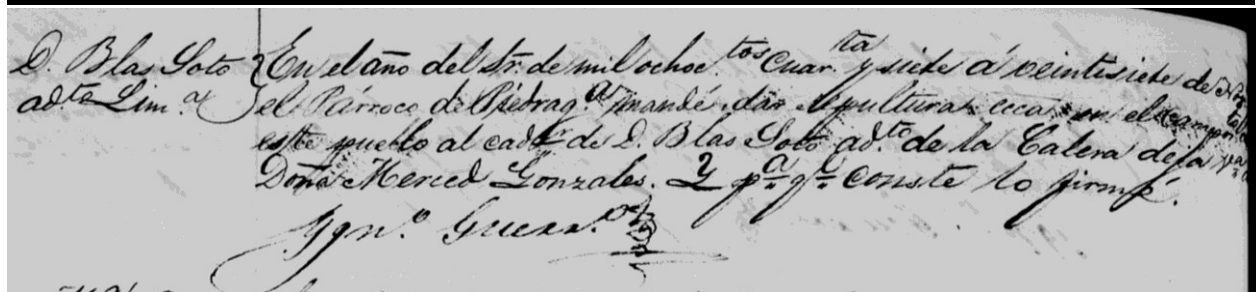 D. Blas Soto
ad.ta Lim.a
En el año del Sr. de mil ochoc.tos Cuar.ta y siete á veintisiete de
el Párroco de Piedrag.a mandé dar sepultura ecca. en el campo
este pueblo al cadr. de D. Blas Soto ad.to de la Calera deja
Doña Merced Gonzales. Y p.a q.e conste lo firmé.
Ygn.o Guerr.o